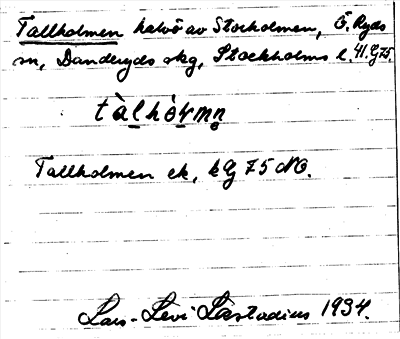 Tallholmen halvö av Storholmen, Ö. Ryds
sn, Danderyds skg, Stockholms l. 41. G75.
tàlhòrmn̥
Tallholmen ek, kG 75 NO.
Lars-Levi Læstadius 1934.